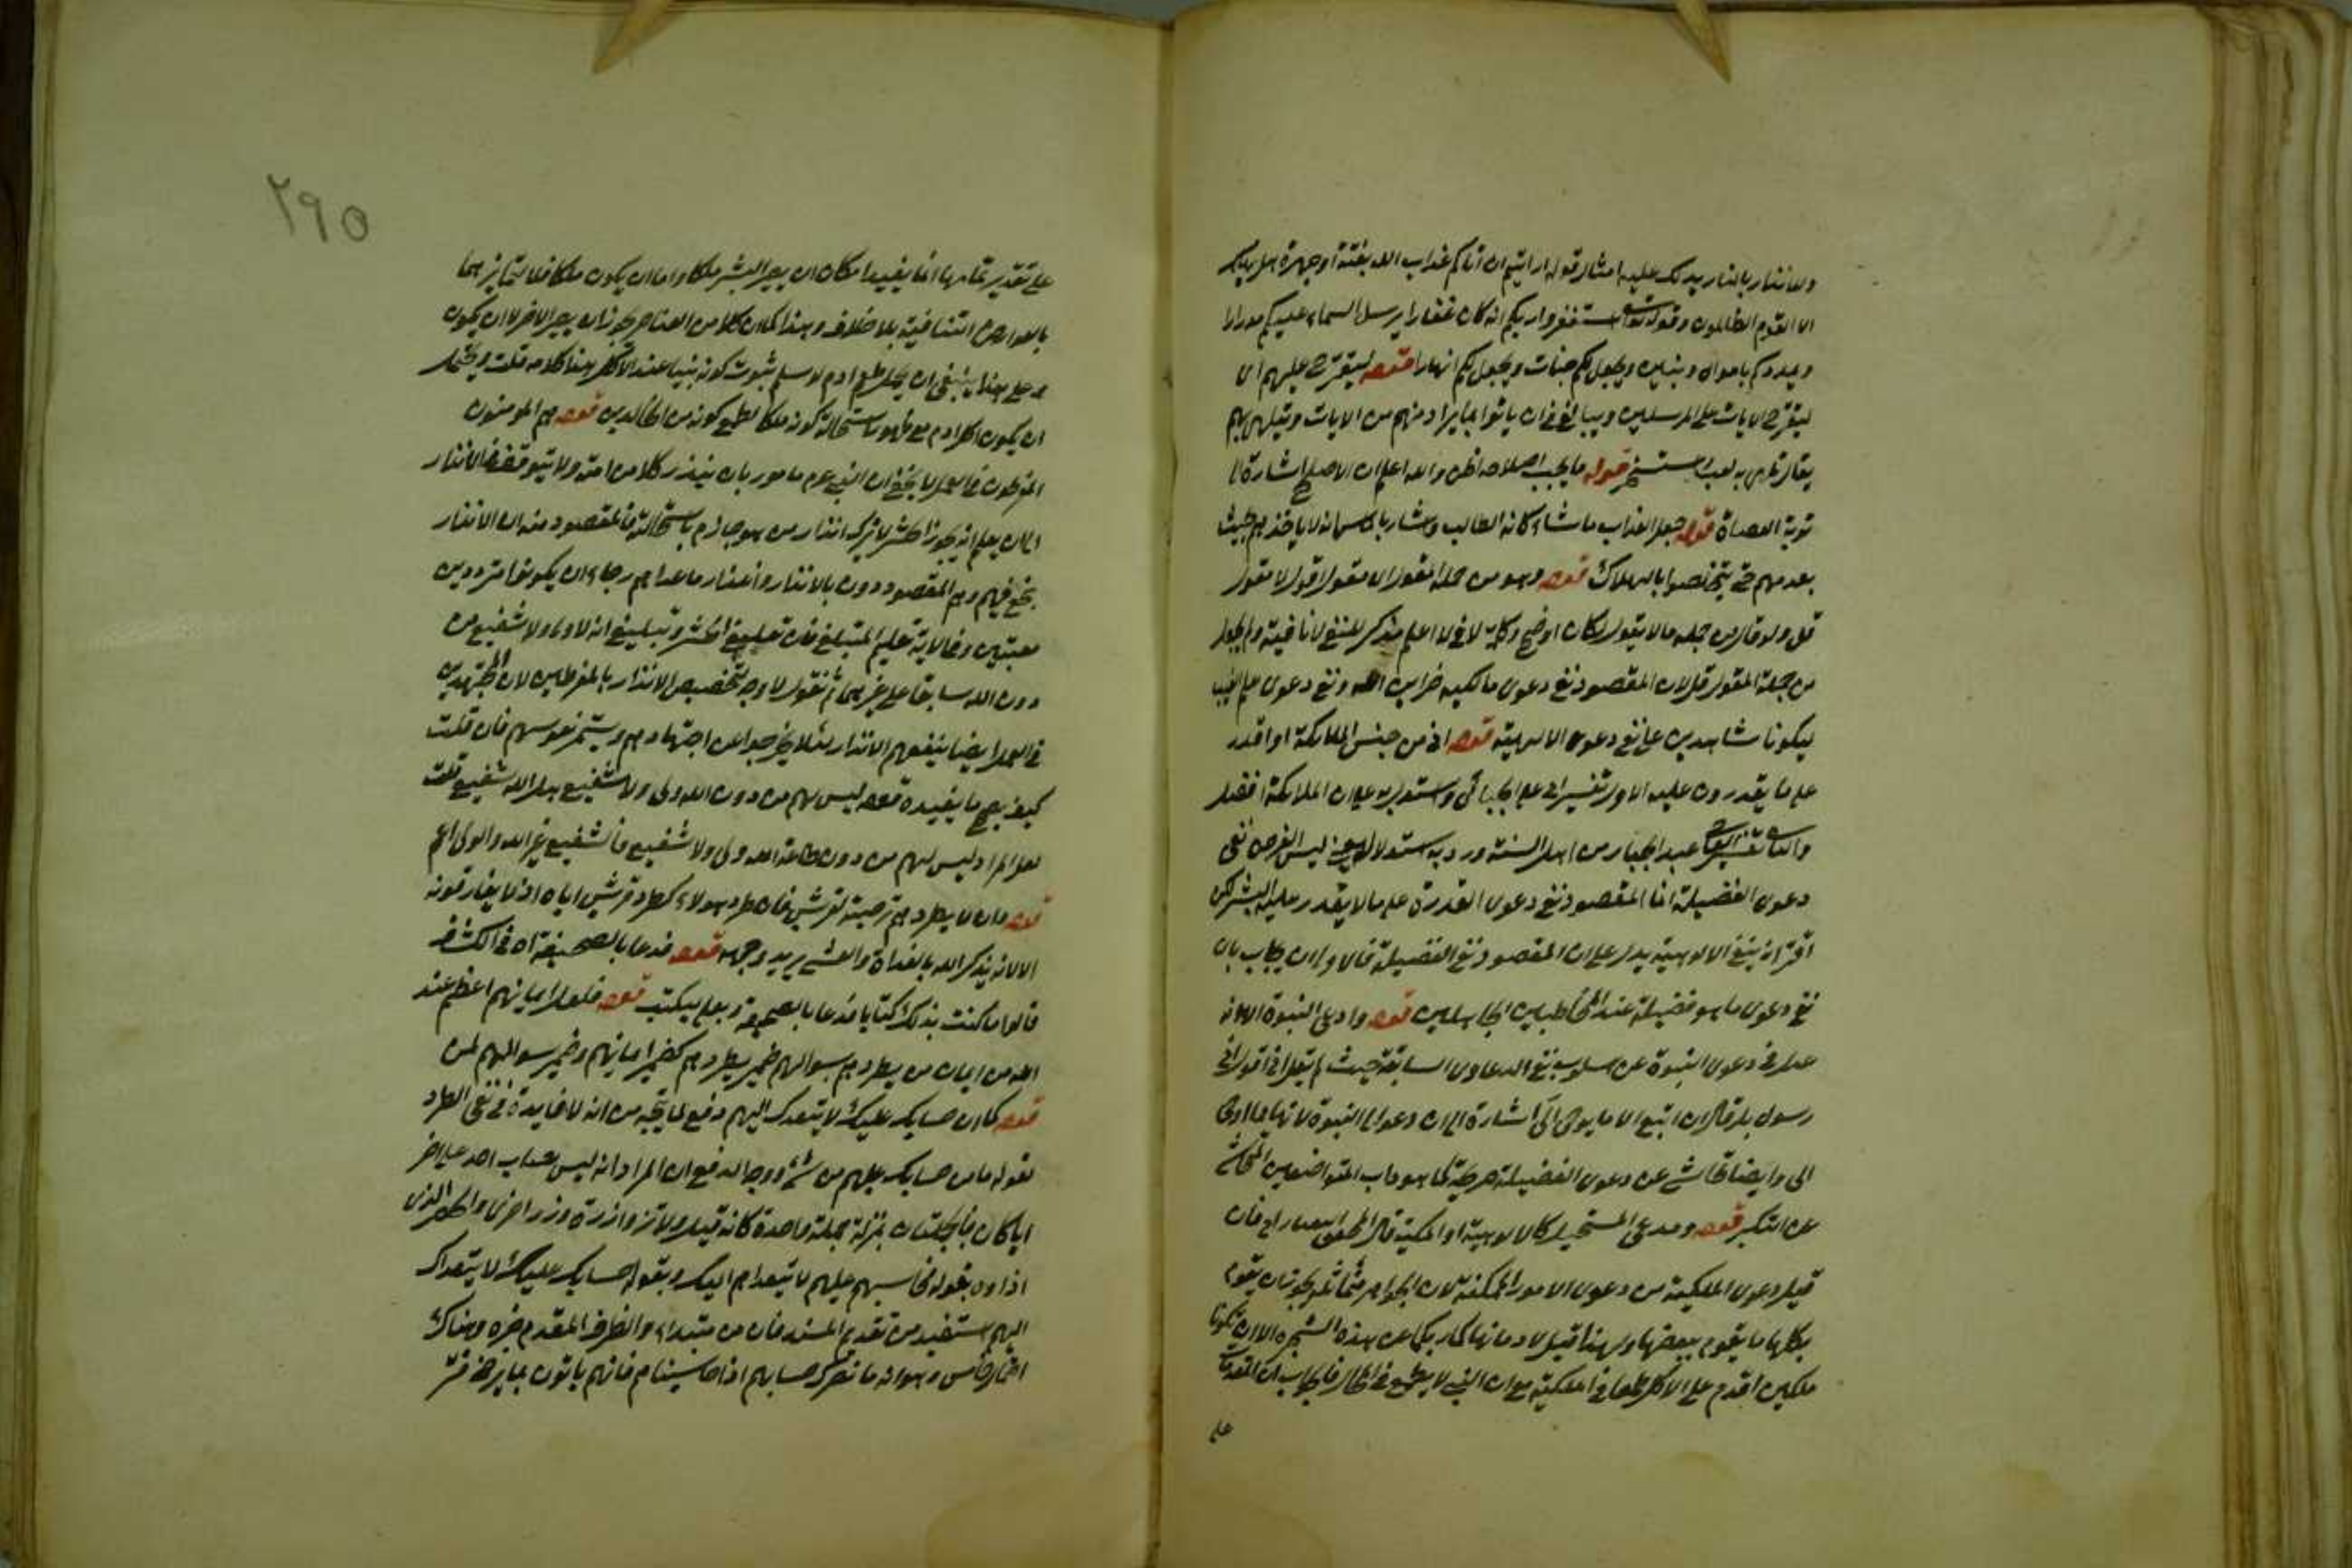 والانذار بالنار يدلك عليه امثال قوله ارايتم ان اتاكم عذاب الله بغتة او جهرة هل يهلك
الا القوم الظالمون وقوله تعالى استغفروا ربكم انه كان غفارا يرسل السماء عليكم مدرارا
ويمددكم باموال وبنين ويجعل لكم جنات ويجعل لكم انهارا قوله ليقترح عليهم اى
ليقترح الايات على المرسلين ويبالغ فى ان ياتوا بما يراد منهم من الايات ويتلهى بهم
يقال تلهى به لعب استسخر قوله ما يجب اصلاحه اظن والله اعلم ان الاصلح اشارة الى
توبة العصاة قوله جعل العذاب ماسا كانه الطالب واشار بالمس انه لا ياخذهم بحيث
يعدمهم حتى يتخلصوا بالهلاك قوله وهو من جملة المقول اى مقول قول لا مقول
قل ولو قال من جملة ما لا يقول لكان اوضح وكلمة لا فى لا اعلم مذكر للنفى لا نافية ولم يجعل
من جملة المقول قل لان المقصود نفى دعوى مالكيه خزاين الله ونفى دعوى علم الغيب
ليكونا شاهدين على نفى دعوى الالهية قوله انى من جنس الملائكة او اقدر
على ما يقدرون عليه الاول تفسير ابى على الجبائى واستدل به على ان الملائكة افضل
والثانى تفسير القاضى عبد الجبار من اهل السنة ورد به استدلال ليس الغرض نفى
دعوى الفضيلة انما المقصود نفى دعوى القدرة على ما لا يقدر عليه البشر لكن
اقترانه بنفى الالوهية يدل على ان المقصود نفى الفضيلة فالاولى ان يجاب بان
نفى دعوى ما هو فضيلة عند المخاطبين الجاهلين قوله وادعى النبوة الا انه
عدل فى دعوى النبوة عن اسلوب نفى الدعاوى السابقة حيث لم يقل انى اقول انى
رسول بل قال ان اتبع الا ما يوحى الى اشارة الى ان دعواى النبوة لانها مما اوحى
الى وايضا تحاشى عن دعوى الفضيلة صريحة كما هو داب المتواضعين المتحاشى
عن التكبر قوله ومدعى المستحيل كالالوهية او الملكية قال المحقق التفتازانى فان
قيل دعوى الملكية من دعوى الامور الممكنة لان الجواهر متماثلة يجوز ان يقوم
بكلها ما يقوم ببعضها ولهذا قيل لادم ما نهاكما ربكما عن هذه الشجرة الا ان تكونا
ملكين اقدم على الاكل طمعا فى الملكية مع ان النبى لا يطمع فى المحال فالجواب ان المقدمات
على
٢٩٥
على تقدير تمامها انما يفيد امكان ان يصير البشر ملكا واما ان يكون ملكا فلا لتمايزهما
بالعوارض المتنافية بلا خلاف وهذا كما ان كلا من العناصر يجوز ان يصير الاخر لا ان يكون
وعلى هذا ينبغى ان يحمل طمع ادم لو سلم ثبوت كونه نبيا عند الاكل هذا كلامه قلت ويحتمل
ان يكون اكل ادم مع ظهور استحالة كونه ملكا لطمع كونه من الخالدين قوله هم المومنون
المفرطون فى العمل لا يخفى ان النبى عم مامور بان ينذر كلا من امته ولا يتوقف الانذار
الى ان يعلم انه يجوز الحشر لا ترك انذار من هو جازم باستحالته فالمقصود منه ان الانذار
ينجع فيهم وهم المقصودون بالانذار وانذار ما عداهم رجاء ان يكونوا مترددين
معتبرين وفى الاية تعليم التبليغ فان تبليغ الحشر وتبليغ انه لا ولى ولا شفيع من
دون الله سابقا على غيرهما ثم نقول لا وجه لتخصيص الانذار بالمفرطين لان المجتهدين
فى العمل ايضا ينفعهم الانذار لئلا يخرجوا عن اجتهادهم ويستمر نفوسهم فان قلت
كيف يصح ما يفيده قوله ليس لهم من دون الله ولى ولا شفيع بل الله شفيع قلت
لعل المراد ليس لهم من دون طاعة الله ولى ولا شفيع فالشفيع غير الله والولى اعم
قوله وان لا يطردهم ترضية لقريش فان طرد هولاء كطرد قريش اياه اذ لا يفارقونه
الا لانه يذكر الله بالغداة والعشى يريد وجهه قوله فدعا بالصحيفة اه فى الكشاف
قالوا فاكتب بذلك كتابا فدعا بالصحيفة وبعلى ليكتب قوله فلعل ايمانهم اعظم عند
الله من ايمان من يطردهم بسوالهم ضمير يطردهم كضمير ايمانهم وضمير سوالهم لمن
قوله كما ان حسابك عليك لا يتعداك اليهم دفع لما يتجه من انه لا فايدة فى نفى الطرد
لقوله ما من حسابك عليهم من شئ ووجه الدفع ان المراد انه ليس حساب احد على اخر
ايا كان فالجملتان بمنزلة جملة واحدة كانه قيل ولا تزر وازرة وزر اخرى
بقوله عليهم لا يتعداهم اليك وبقوله حسابك عليك لا يتعداك
اليهم استفيد من تقديم المسند فان من مبتداء والظرف المقدم خبره وهناك
احتمال خامس وهو انه ما نضرك حسابهم اذا حاسبناهم فانهم ياتون بما يرضى